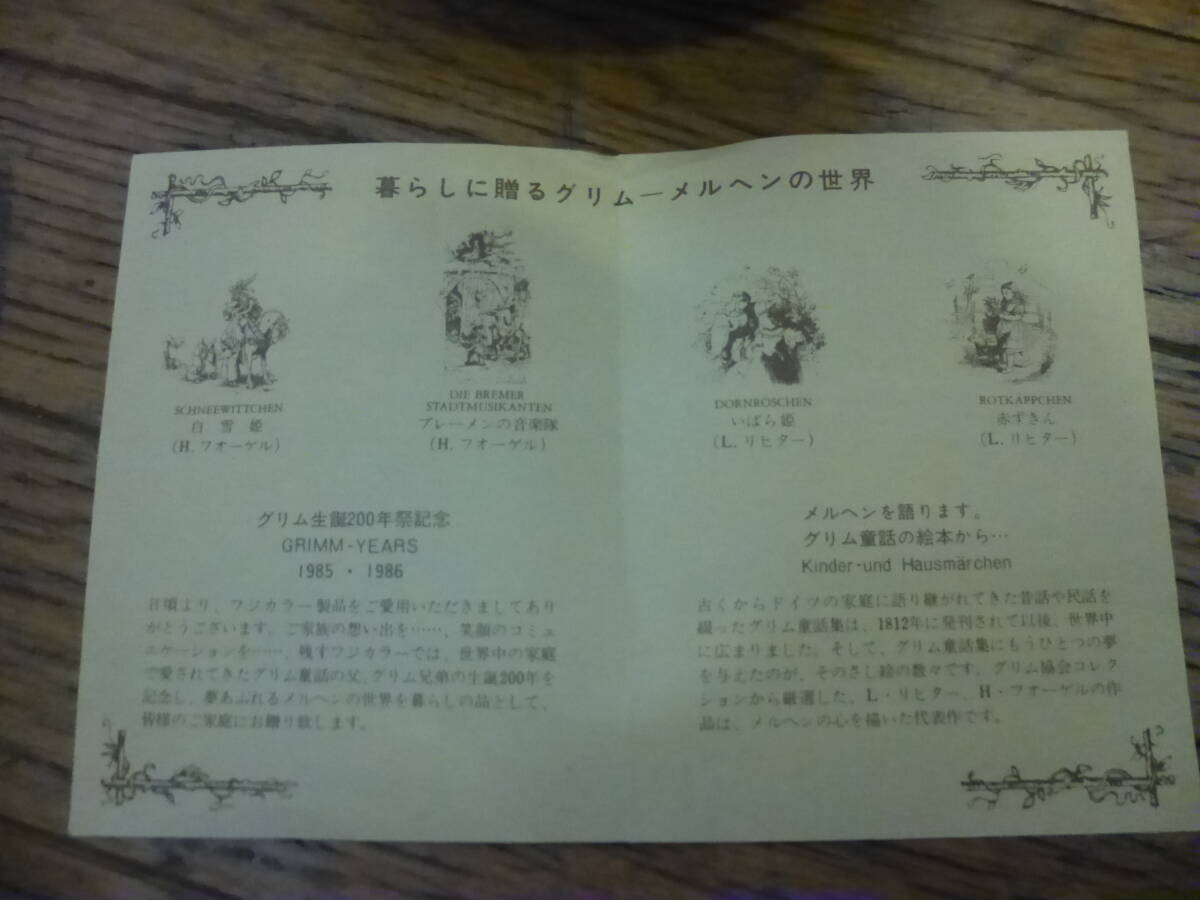 暮らしに贈るグリム―メルヘンの世界
SCHNEEWITTCHEN
白雪姫
(H. フオーゲル)
DIE BREMER
STADTMUSIKANTEN
ブレーメンの音楽隊
(H. フオーゲル)
DORNROSCHEN
いばら姫
(L. リヒター)
ROTKAPPCHEN
赤ずきん
(L. リヒター)
グリム生誕200年祭記念
GRIMM-YEARS
1985・1986
日頃より、フジカラー製品をご愛用いただきましてあり
がとうございます。ご家族の想い出を……、笑顔のコミュ
ニケーションを……、残すフジカラーでは、世界中の家庭
で愛されてきたグリム童話の父、グリム兄弟の生誕200年を
記念し、夢あふれるメルヘンの世界を暮らしの品として、
皆様のご家庭にお贈り致します。
メルヘンを語ります。
グリム童話の絵本から…
Kinder-und Hausmärchen
古くからドイツの家庭に語り継がれてきた昔話や民話を
綴ったグリム童話集は、1812年に発刊されて以後、世界中
に広まりました。そして、グリム童話集にもうひとつの夢
を与えたのが、そのさし絵の数々です。グリム協会コレク
ションから厳選した、L・リヒター、H・フオーゲルの作
品は、メルヘンの心を描いた代表作です。